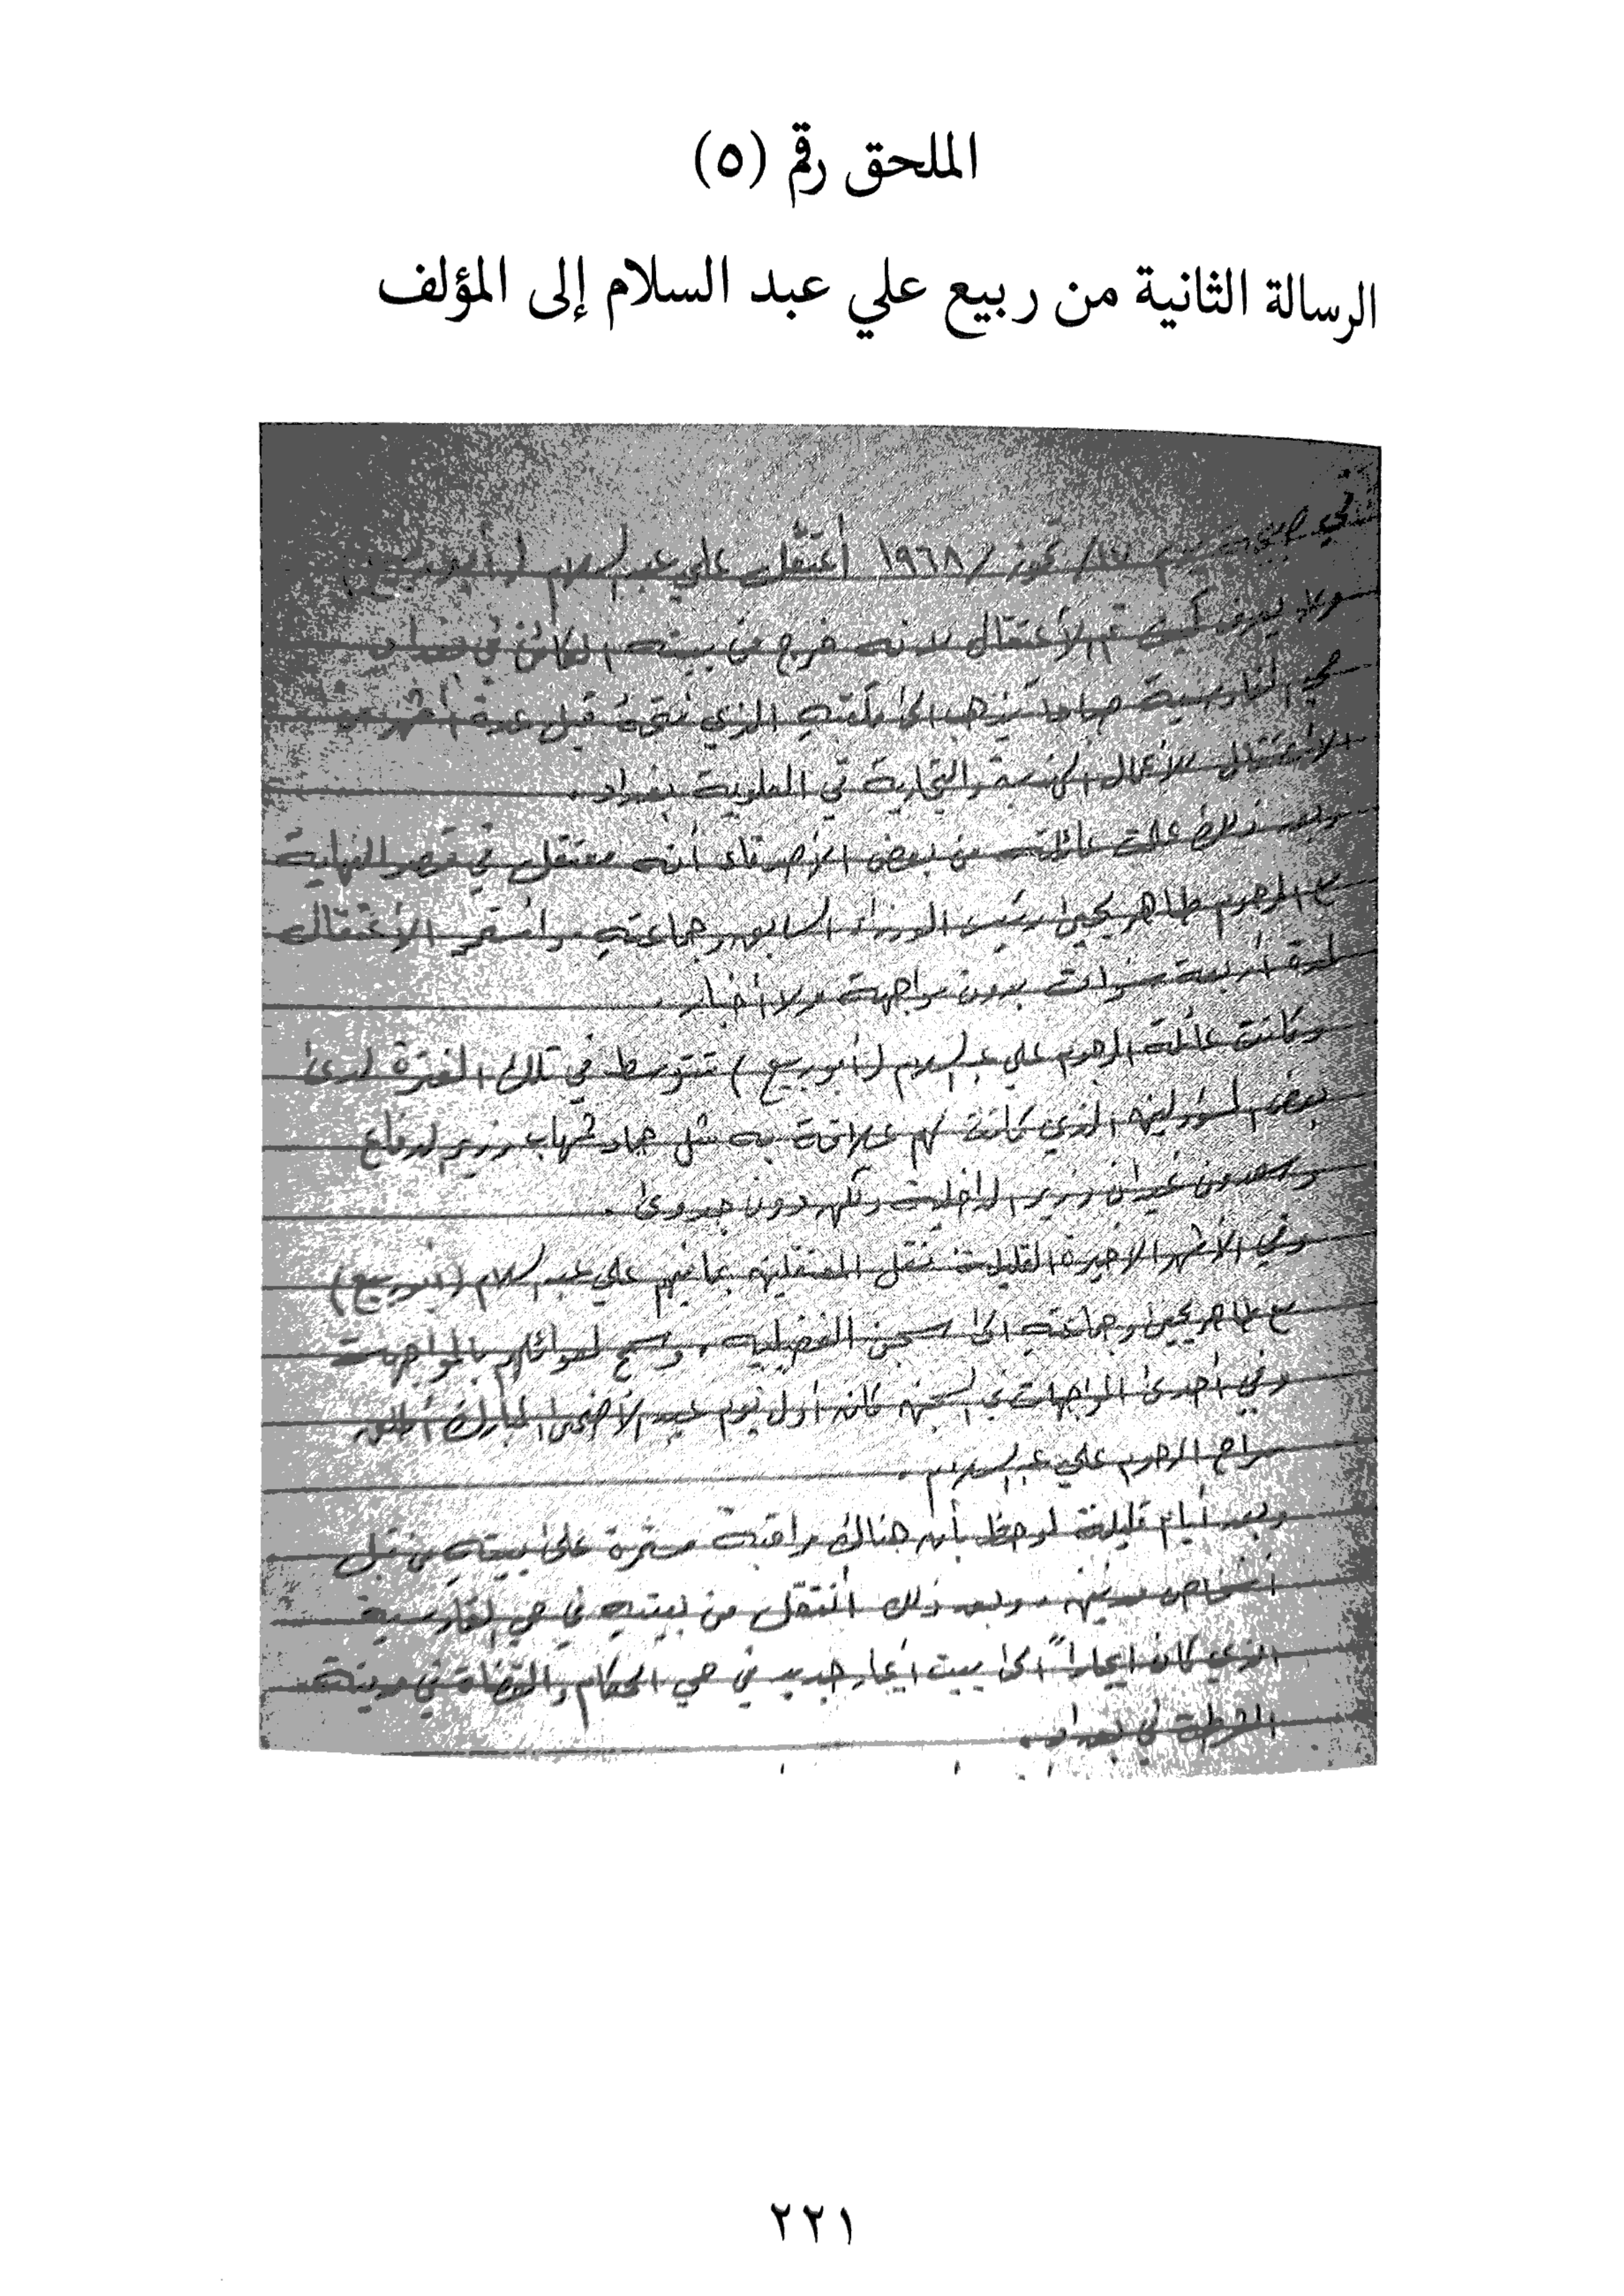 الملحق رقم (٥)
الرسالة الثانية من ربيع علي عبد السلام إلى المؤلف
في يوم ١٧/ تموز / ١٩٦٨ أعتقل علي عبد السلام (أبو ربيع)
ولا يعرف كيف تم الأعتقال لانه خرج من بيته الكائن في بغداد
حي القادسية صباحاً ليذهب الى مكتبه الذي فتحهُ قبل عدة أشهر من
الأعتقال للأعمال الهندسية والتجارية في العلوية بغداد.
وبعد ذلك علمت عائلته من بعض الأصدقاء أنه معتقل في قصر النهاية
مع المرحوم طاهر يحيىٰ رئيس الوزراء السابق وجماعته وأستمر الأعتقال
لمدة أربعة سنوات بدون مواجهة ولا أخبار.
وكانت عائلة المرحوم علي عبد السلام (أبو ربيع) تتوسط في تلك الفترة لدىٰ
بعض المسؤولين الذي كانت لهم علاقة به مثل حماد شهاب وزير الدفاع
وسعدون غيدان وزير الداخلية ولكن دون جدوىٰ.
وفي الأشهر الأخيرة القليلة نقل المعتقلين بما فيهم علي عبد السلام (أبو ربيع)
مع طاهر يحيىٰ وجماعته الىٰ سجن الفضيلية، وسمح لعوائلهم بالمواجهات
وفي أحدىٰ المواجهات في السجن كان أول يوم عيد الأضحىٰ المبارك أطلق
سراح المرحوم علي عبد السلام.
وبعد أيام قليلة لوحظ بأن هنالك مراقبة مستمرة علىٰ بيته من قبل
أشخاص مدنين. وبعد ذلك أنتقل من بيته في حي القادسية
الذي كان ايجاراً الىٰ بيت ايجار جديد في حي الحكام والقضاة في مدينة
الشرطة في بغداد.
٢٢١